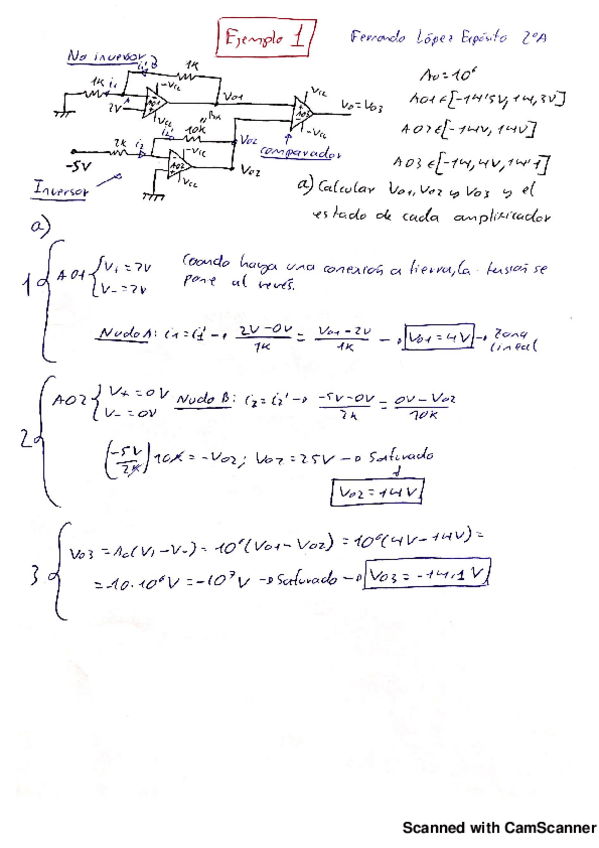 Ejemplo 1
Fernando López Expósito 2ºA
No inversor
1K
1K
i1
i1'
-Vcc
Vcc
A
AO1
2V
Vo1
Vcc
AO3
-Vcc
Vo=Vo3
2K
i2
i2'
10K
Vo2
-Vcc
AO2
Vcc
Vo2
-5V
comparador
Inversor
Ao=10⁶
AO1 ∈[-14'5V, 14,3V]
AO2 ∈[-14V, 14V]
AO3 ∈[-14,4V, 14'1]
a) Calcular Vo1, Vo2 y Vo3 y el
estado de cada amplificador
a)
1
AO1 { V+ = 2V
V- = 2V
Cuando haya una conexión a tierra, la tensión se
pone al revés.
Nudo A: i1 = i1' → (2V-0V)/1K = (Vo1-2V)/1K → Vo1 = 4V → Zona
lineal
2
AO2 { V+ = 0V
V- = 0V
Nudo B: i2 = i2' → (-5V-0V)/2K = (0V-Vo2)/10K
(-5V/2K) 10K = -Vo2; Vo2 = 25V → Saturado
Vo2 = 14V
3
Vo3 = Ao(V+-V-) = 10⁶(Vo1-Vo2) = 10⁶(4V-14V) =
= 10·10⁶V = -10⁷V → Saturado → Vo3 = -14,1V
Scanned with CamScanner